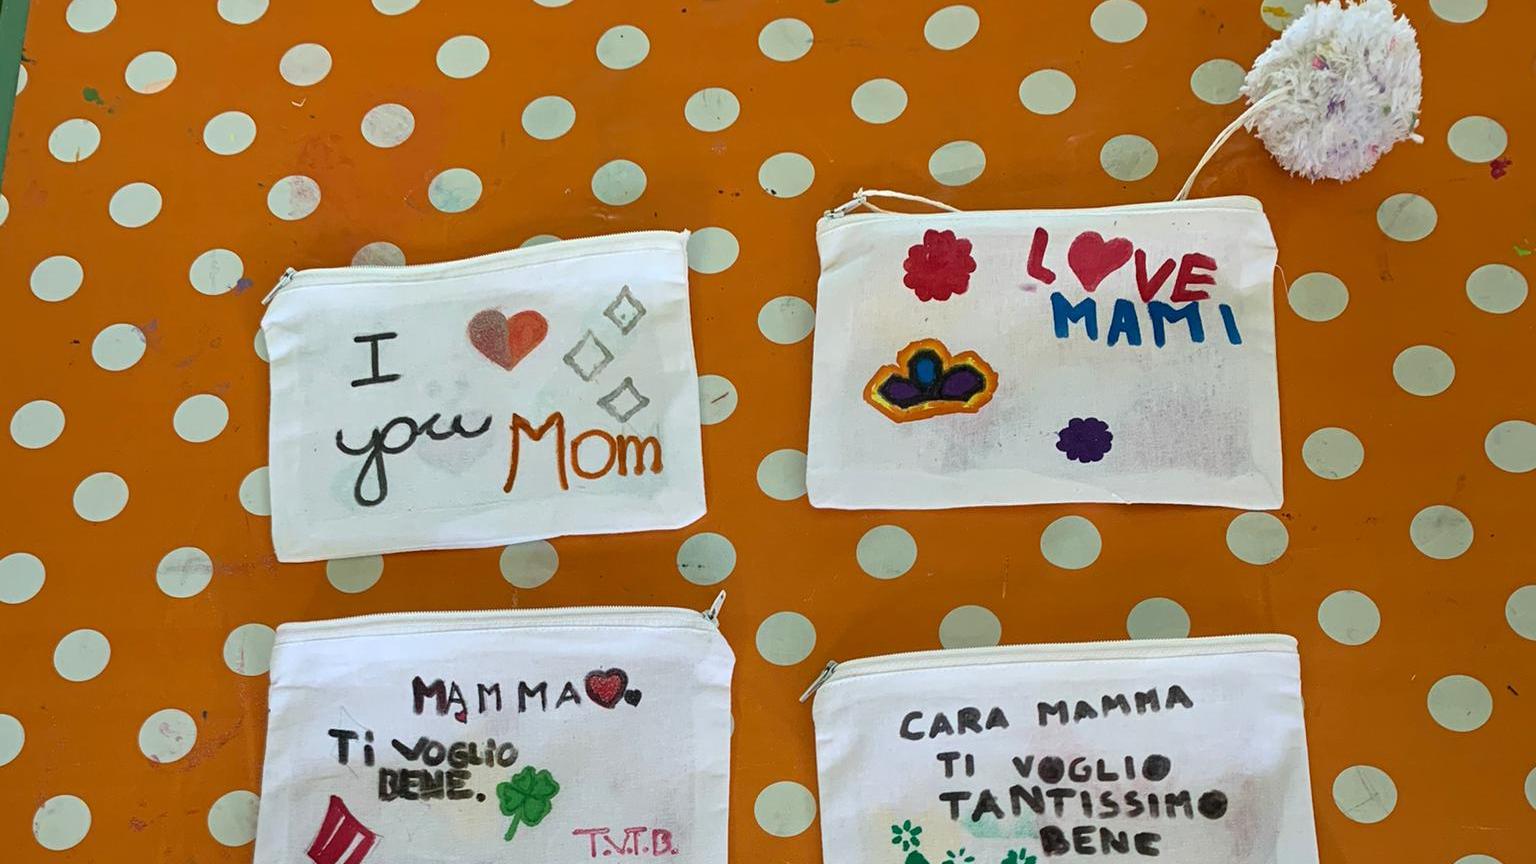 I
you Mom
LOVE
MAMI
MAMMA
Ti VOGLiO
BENE.
T.V.T.B.
CARA MAMMA
TI VOGLIO
TANTISSIMO
BENE